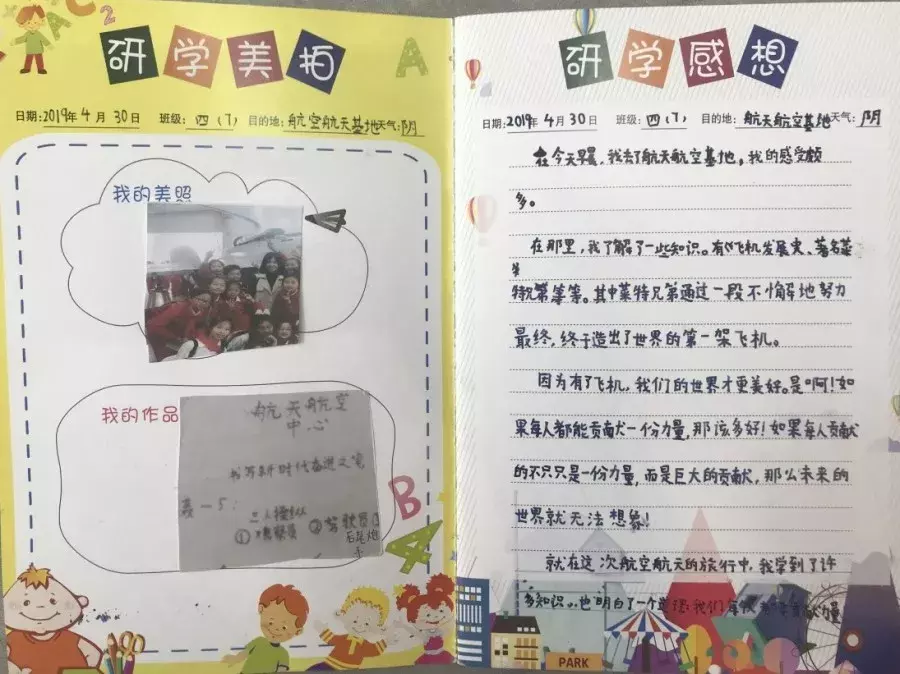 研学美拍
日期:2019年4月30日 班级:四(7) 目的地:航空航天基地 天气:阴
我的美照
我的作品
航天航空
中心
书写新时代奋进之笔
轰-5:
三人操纵
①观察员 ②驾驶员 ③
后尾炮
手
B
PARK
研学感想
日期:2019年4月30日 班级:四(7) 目的地:航天航空基地 天气:阴
在今天早晨,我去了航天航空基地,我的感受颇
多。
在那里,我了解了一些知识。有《飞机发展史、著名莱
特兄第等等。其中莱特兄第通过一段不懈地努力
最终,终于造出了世界的第一架飞机。
因为有了飞机,我们的世界才更美好。是啊!如
果每人都能贡献一份力量,那该多好!如果每人贡献
的不只只是一份力量,而是巨大的贡献,那么未来的
世界就无法想象!
就在这次航空航天的旅行中,我学到了许
多知识。也明白了一个道理:我们